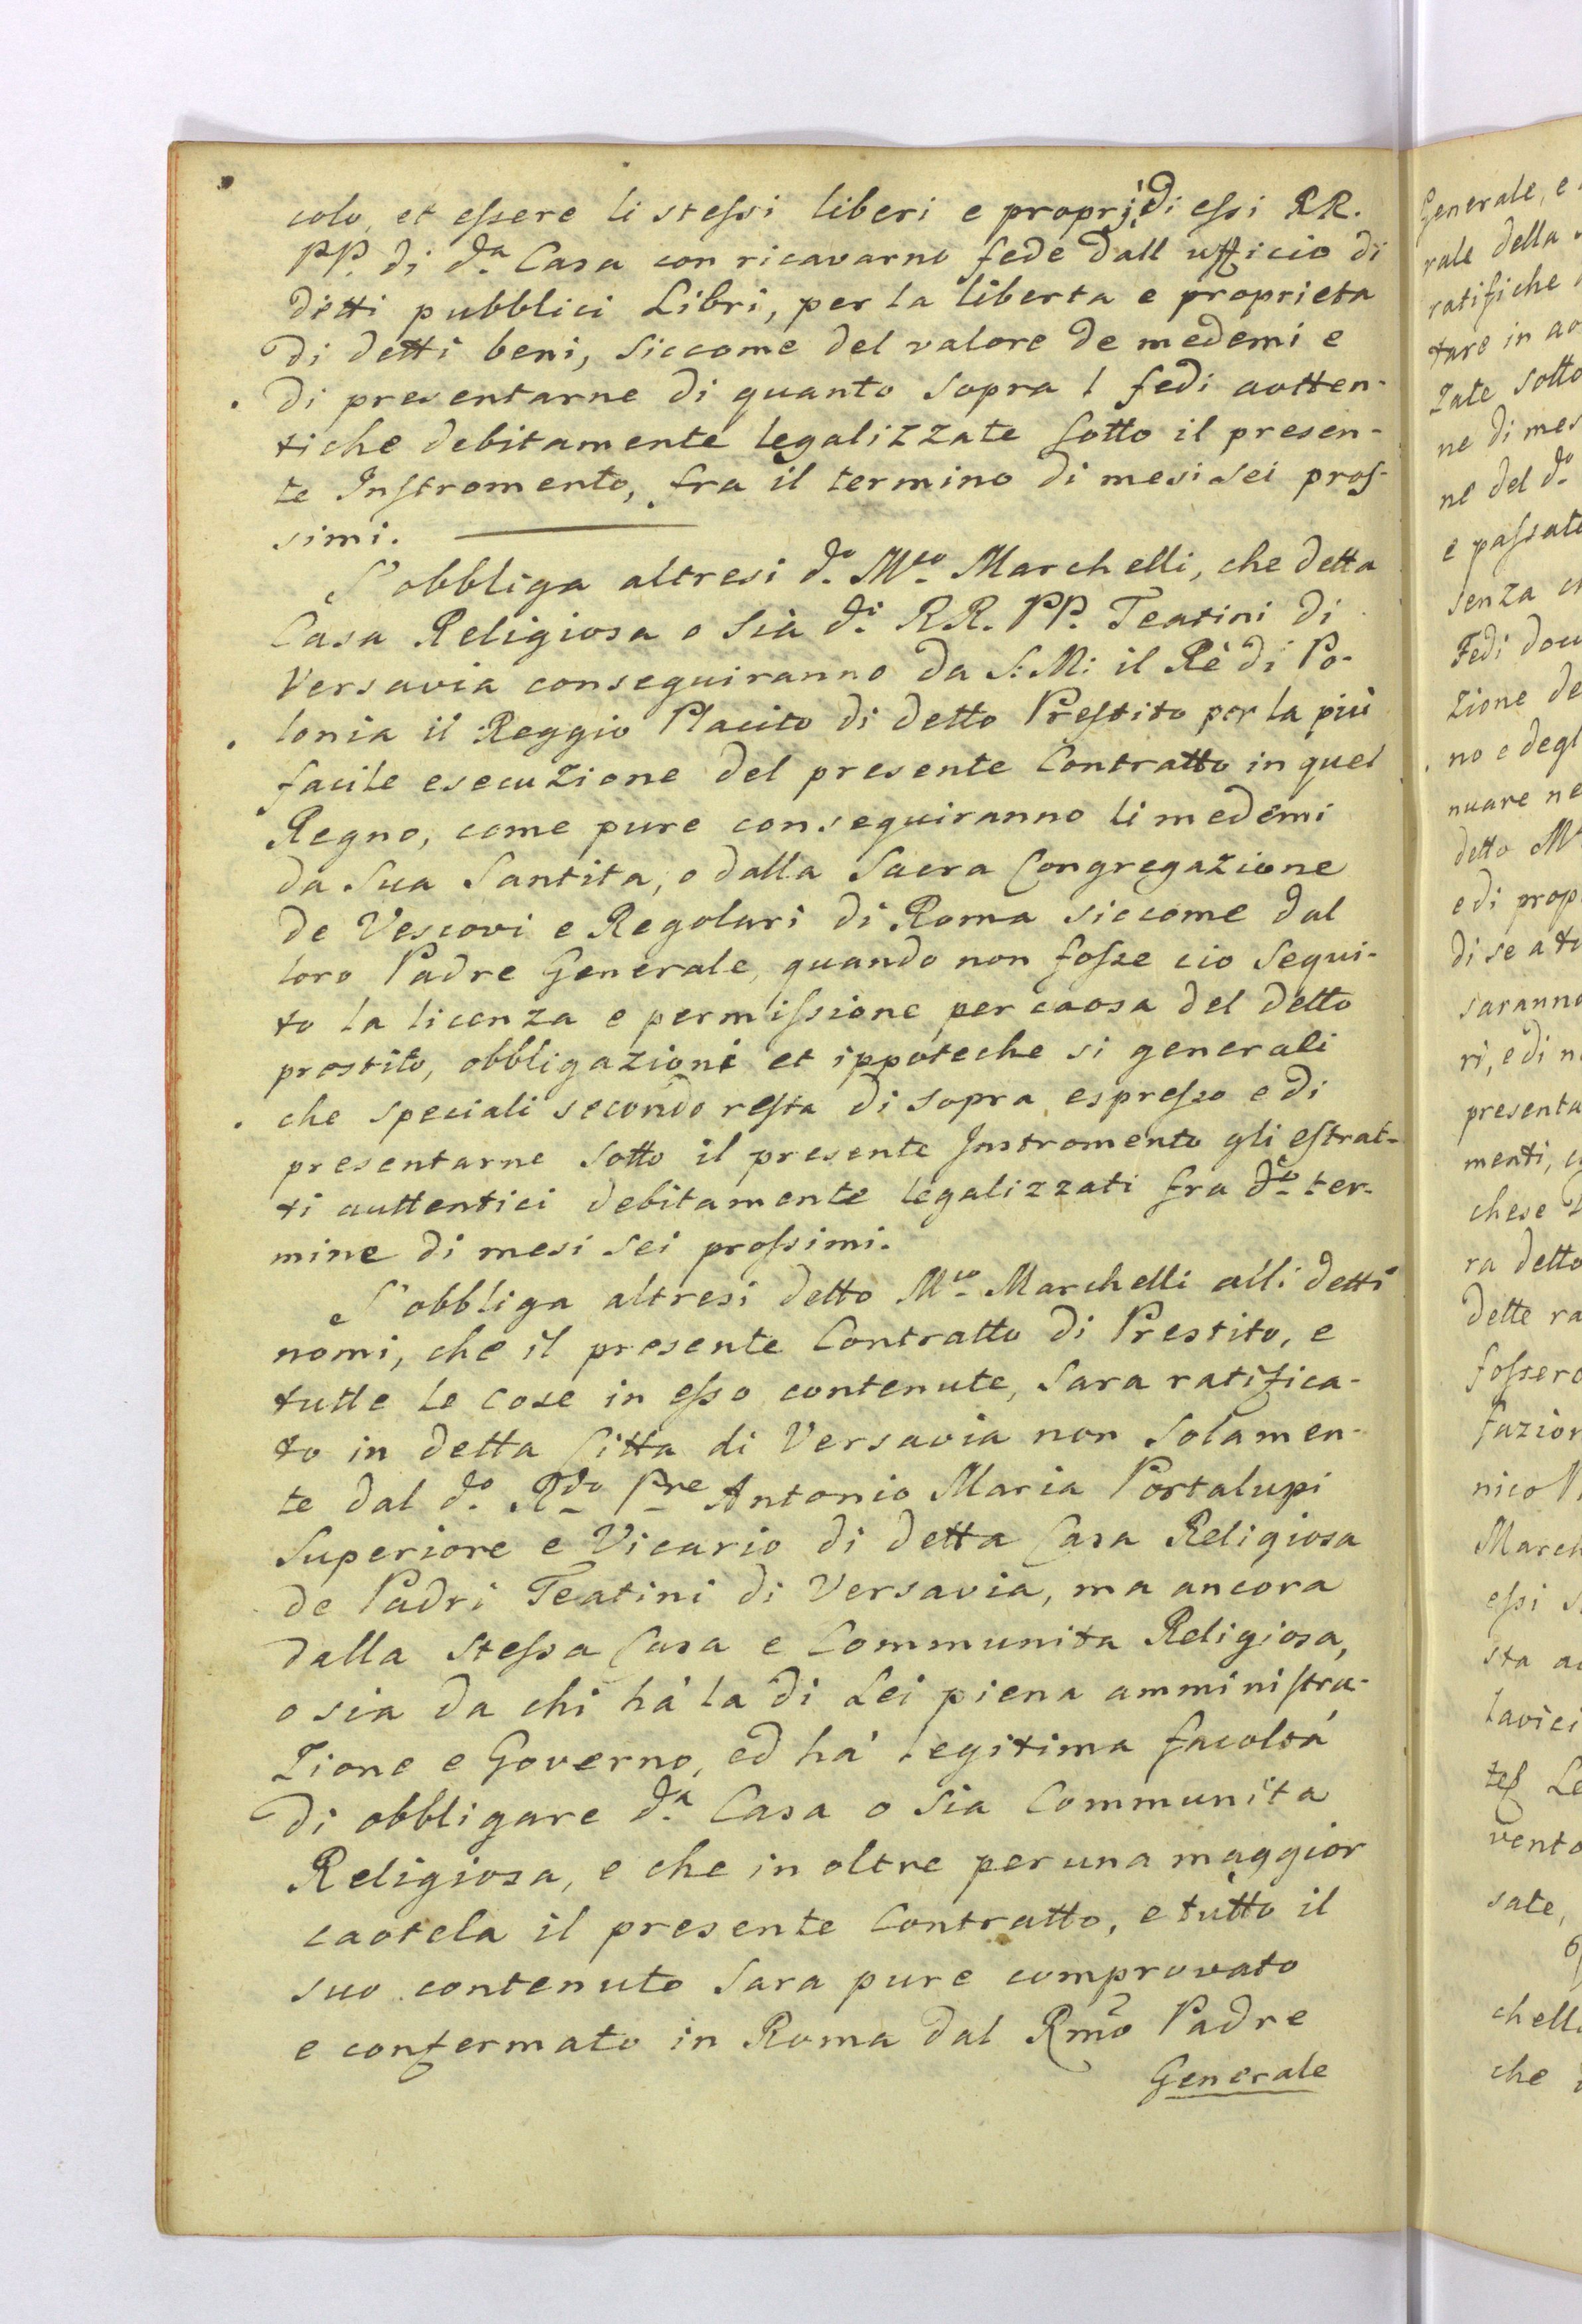 colo, et essere li stessi liberi e proprj di essi RR.
PP. di d.a Casa con ricavarne fede dall ufficio di
ditti pubblici Libri, per la liberta e proprieta
di detti beni, siccome del valore de medemi e
di presentarne di quanto sopra l fedi autten-
tiche debitamente legalizzate sotto il presen-
te Instromento, fra il termino di mesi sei pros-
simi.
S'obbliga altresi d.o M.co Marchelli, che detta
Casa Religiosa o sia d.i RR. PP. Teatini di
Versavia conseguiranno da S: M: il Rè di Po-
lonia il Reggio Placito di detto Prestito per la più
facile esecuzione del presente Contratto in quel
Regno, come pure conseguiranno li medemi
da Sua Santita, o dalla Sacra Congregazione
de Vescovi e Regolari di Roma siccome dal
loro Padre Generale, quando non fosse cio segui-
to la licenza e permissione per caosa del detto
prestito, obbligazioni et ippoteche si generali
che speciali secondo resta di sopra espresso e di
presentarne sotto il presente Instromento gli estrat-
ti auttentici debitamente legalizzati fra d.to ter-
mine di mesi sei prossimi.
S'obbliga altresi detto M.co Marchelli alli detti
nomi, che il presente Contratto di Prestito, e
tutte le cose in esso contenute, sara ratifica-
to in detta Citta di Versavia non solamen-
te dal d.o R.do P.re Antonio Maria Portalupi
Superiore e Vicario di detta Casa Religiosa
de Padri Teatini di Versavia, ma ancora
dalla stessa Casa e Communita Religiosa,
o sia da chi há la di Lei piena amministra-
zione e Governo, ed há legitima facoltá
di obbligare d.a Casa o sia Communita
Religiosa, e che in oltre per una maggior
caotela il presente Contratto, e tutto il
suo contenuto sara pure comprovato
e confermato in Roma dal Rmo Padre
Generale
Generale, e
rale della
ratifiche
tare in
zate sotto
ne di mes
ne del d.o
e passat
senza
Fedi
zione de
no e degl
nuare ne
detto M
e di prop
di se a
saranno
ri, e di n
presenta
menti,
chese
ra detto
dette ra
fossero
fazion
nico
March
essi s
sta
lavici
Le
vento
sate,
chelli
che